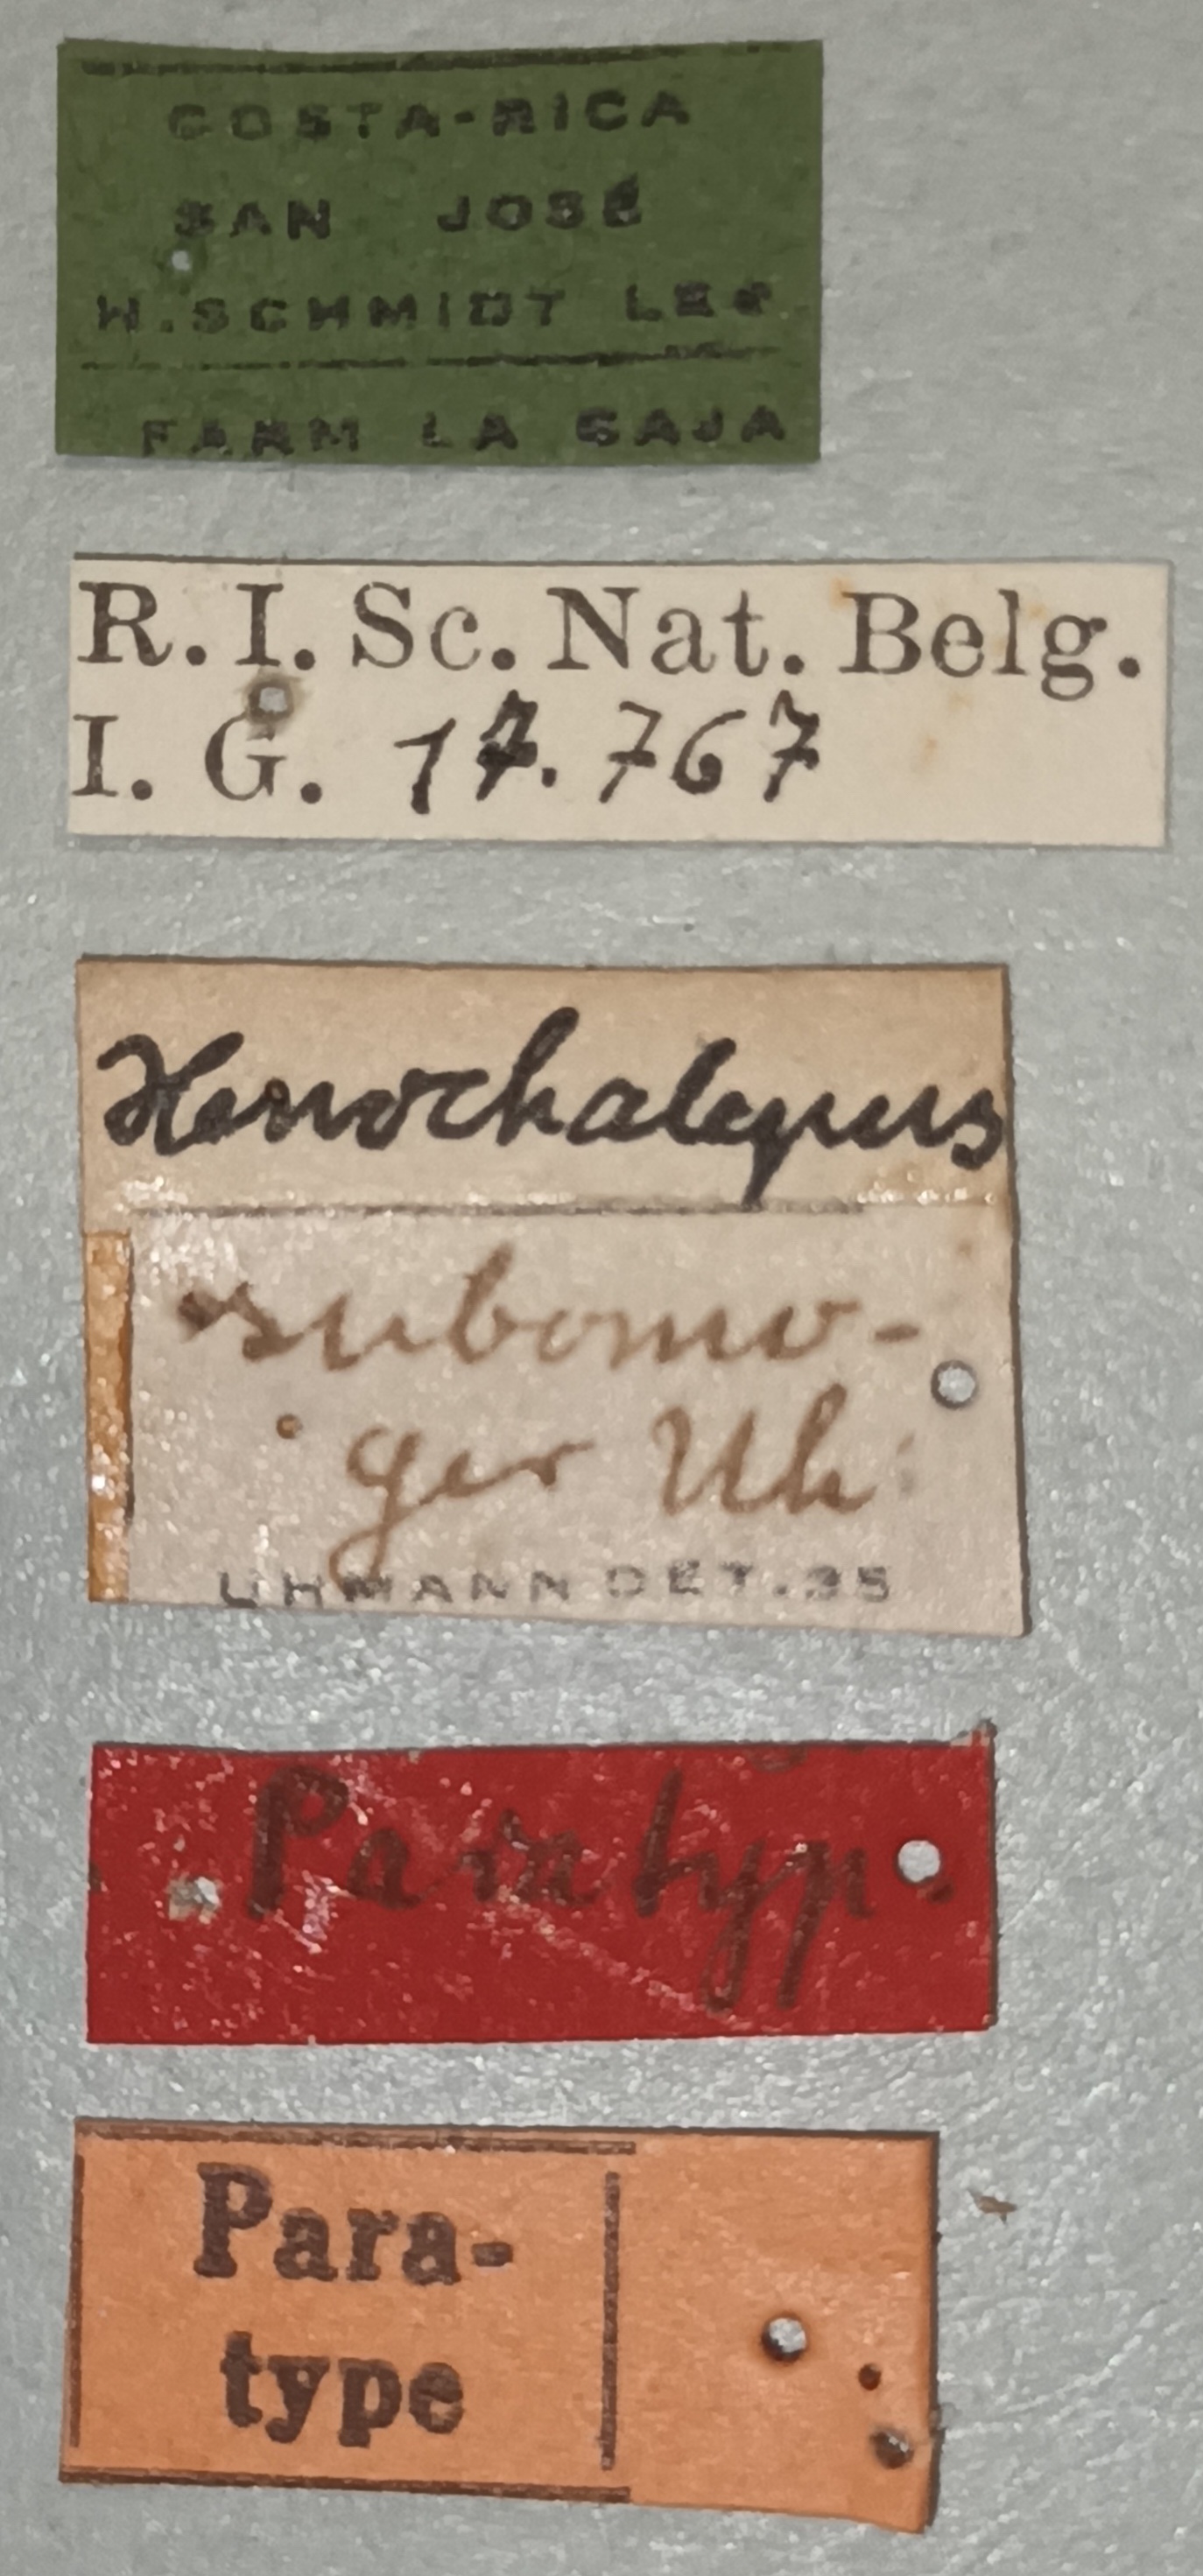 COSTA-RICA
SAN JOSÉ
H. SCHMIDT LEG.
FARM LA CAJA
R. I. Sc. Nat. Belg.
I. G. 17.767
Xenochalepus
subomo-
ger Uh
UHMANN DET. 35
Paratyp.
Para-
type